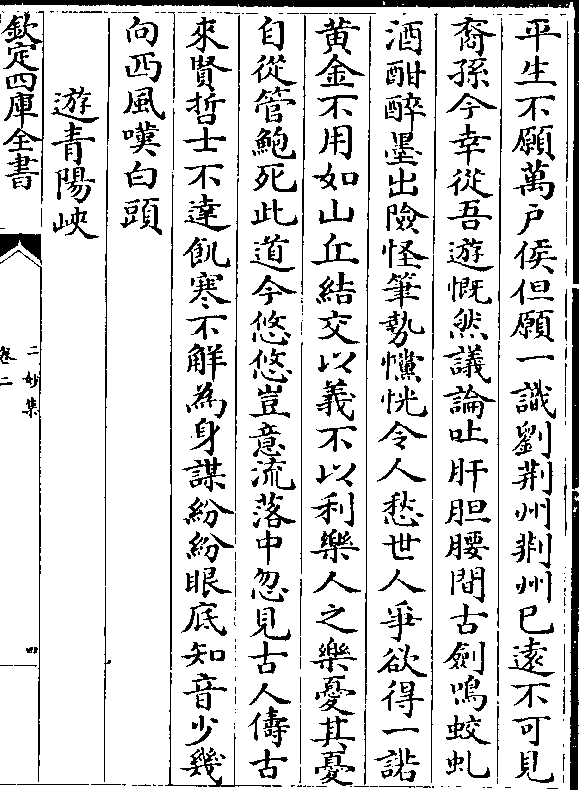 平生不願萬户侯但願一識劉荆州荆州已逺不可見
裔孫今幸從吾遊慨然議論吐肝胆腰間古劍鳴蛟虬
酒酣醉墨出險怪筆勢戃恍令人愁世人爭欲得一諾
黄金不用如山丘結交以義不以利樂人之樂憂其憂
自從管鮑死此道今悠悠豈意流落中忽見古人儔古
來賢哲士不達飢寒不解為身謀紛紛眼底知音少幾
向西風嘆白頭
遊青陽峽
欽定四庫全書
二妙集
卷二
四